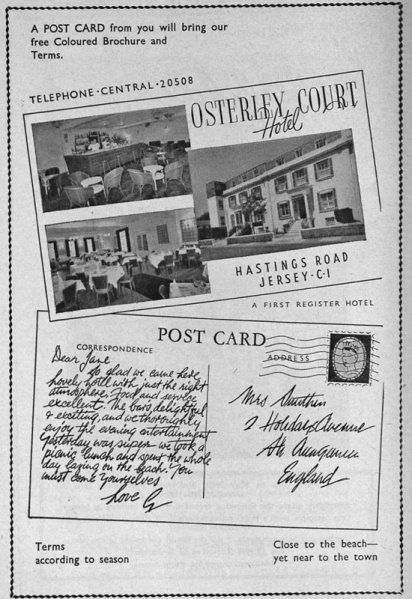 A POST CARD from you will bring our
free Coloured Brochure and
Terms.
TELEPHONE·CENTRAL·20508
OSTERLEY COURT
Hotel
HASTINGS ROAD
JERSEY·C·I
A FIRST REGISTER HOTEL
POST CARD
CORRESPONDENCE
ADDRESS
Dear Jane
So glad we came here
lovely hotel with just the right
atmosphere. Food and service
excellent. The bars delightful
& exciting, and we thoroughly
enjoy the evening entertainment
Yesterday was super we took a
picnic lunch and spent the whole
day laying on the beach. You
must come yourselves
Love
Mrs
2 Holiday Avenue
England
Terms
according to season
Close to the beach—
yet near to the town